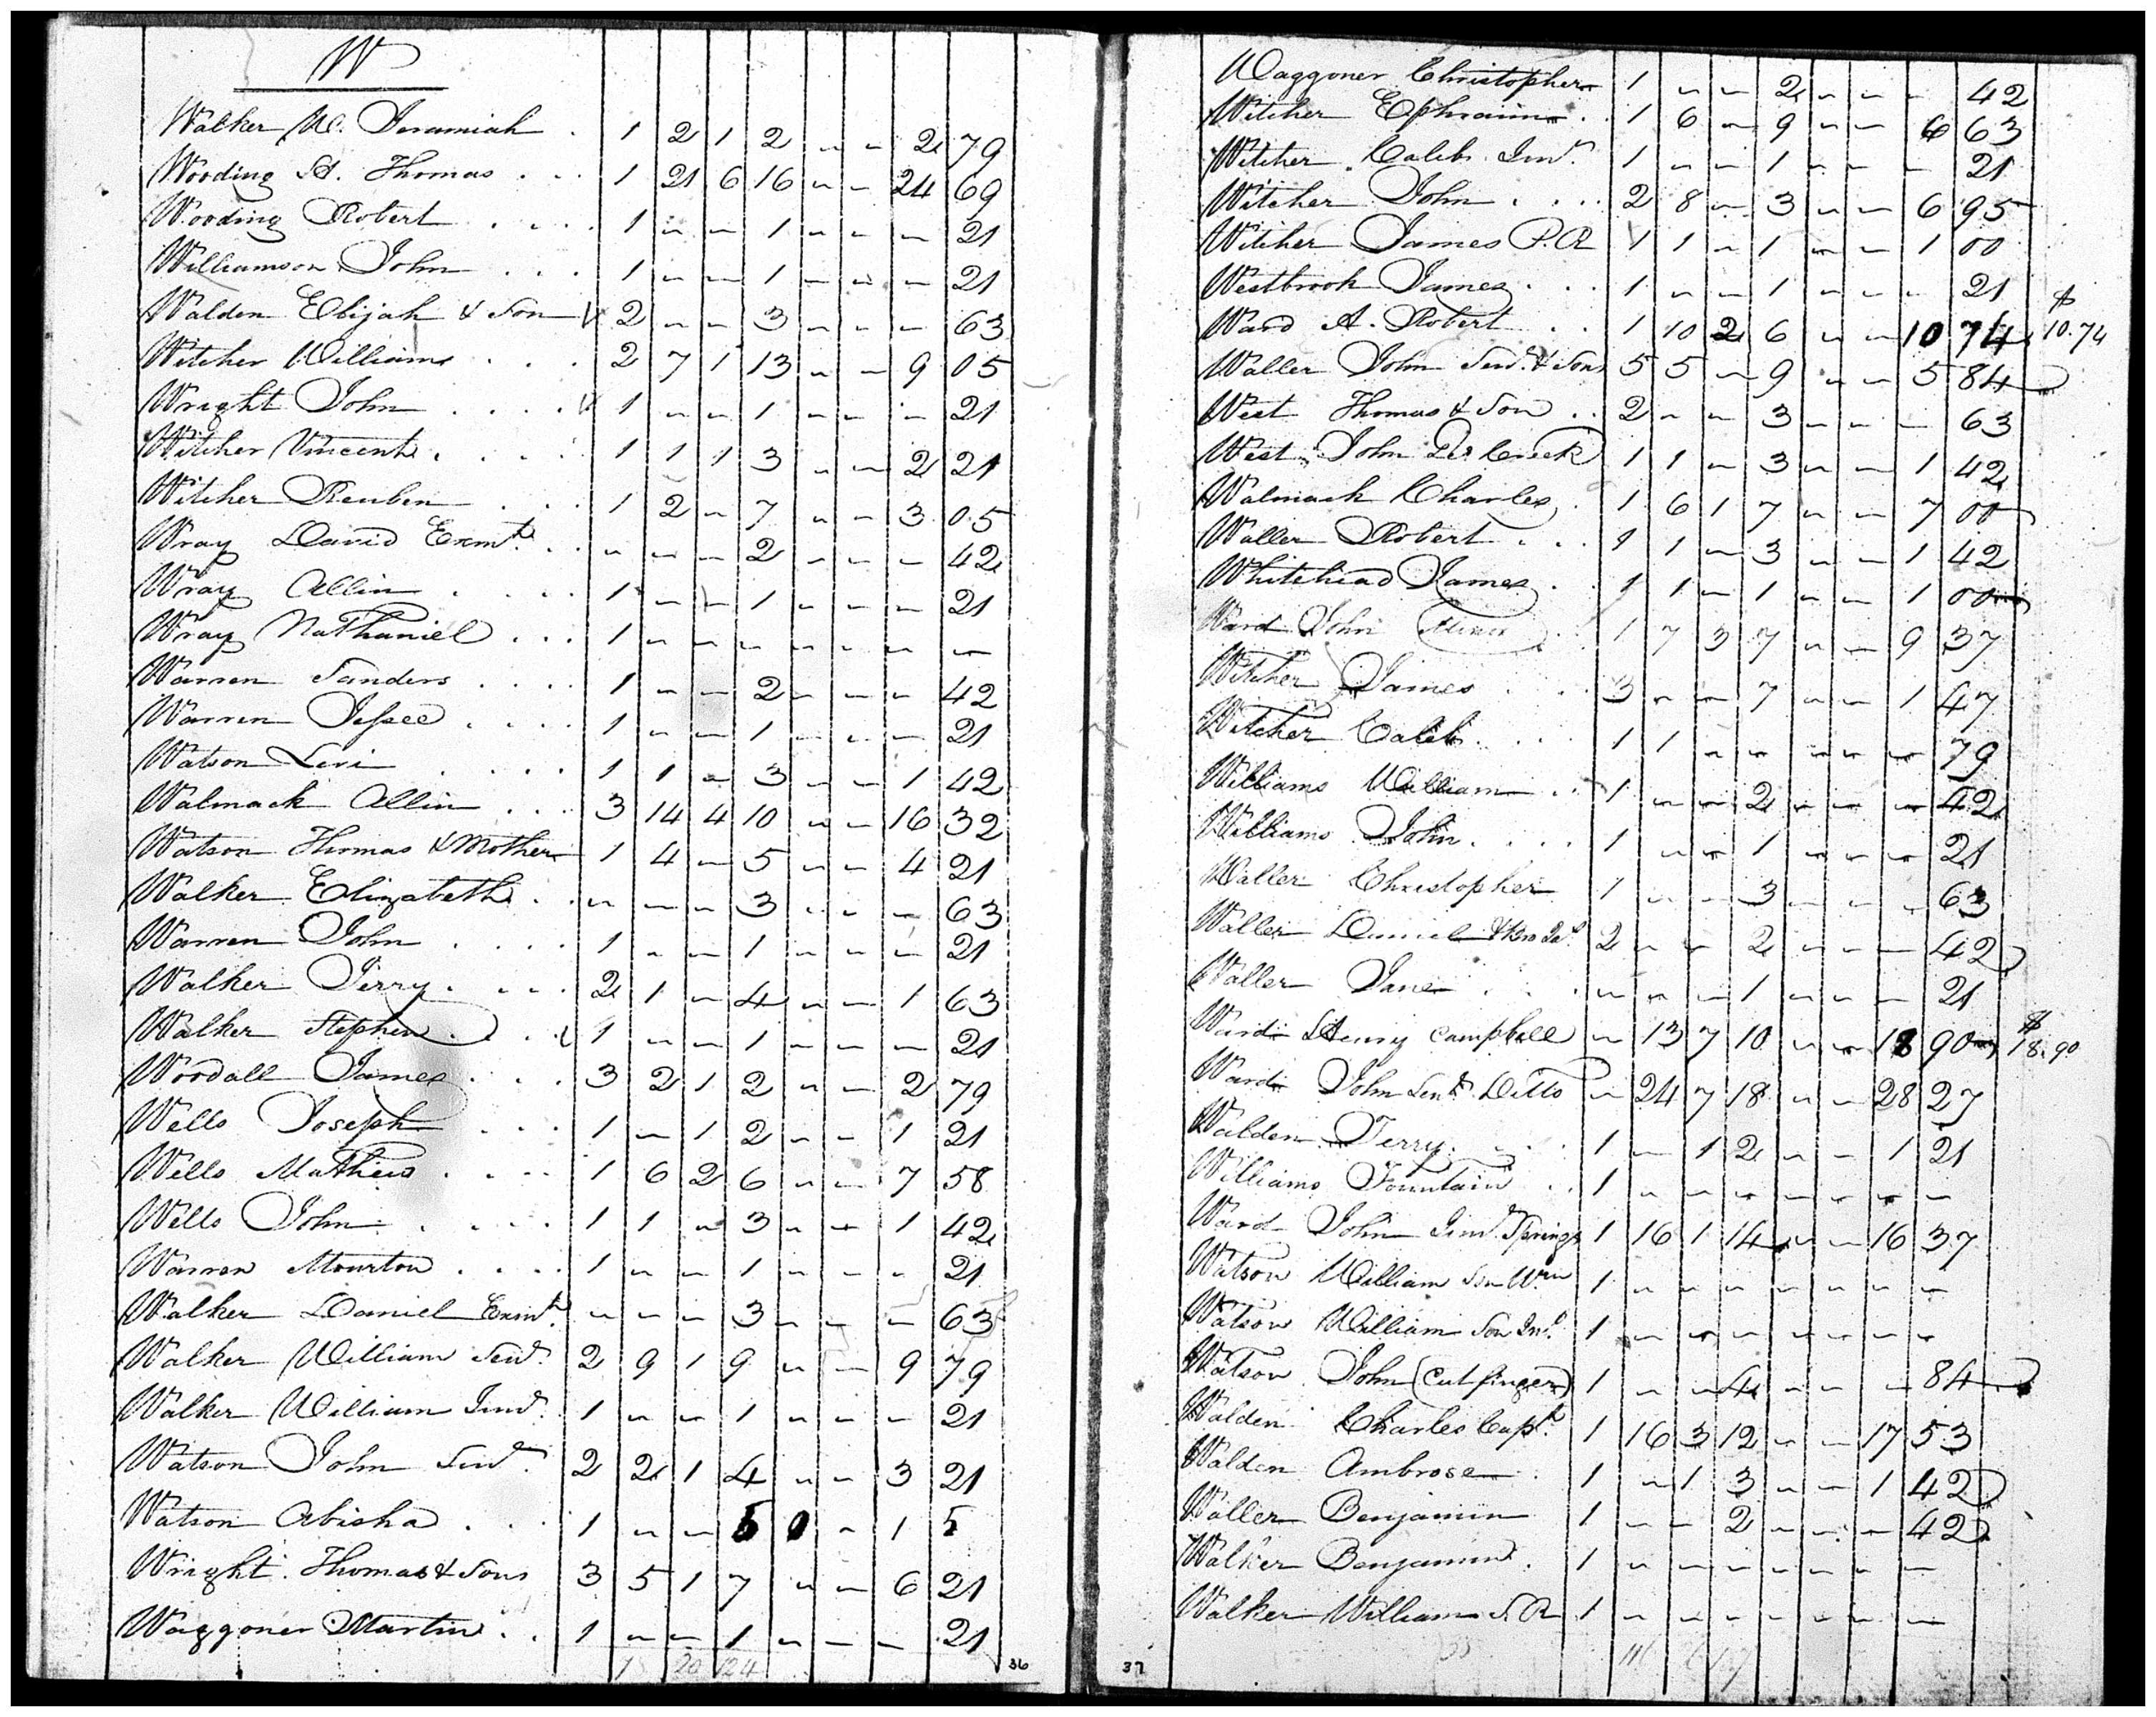 W
Walker W. Jeramiah . 1 2 1 2 " " 2 79
Wooding H. Thomas . . . 1 21 6 16 " " 24 69
Wooding Robert . . . . 1 " " 1 " " " 21
Williamson John . . . 1 " " 1 " " " 21
Walden Elijah & Son 2 " " 3 " " " 63
Witcher William . . . 2 7 1 13 " " 9 05
Wright John . . . . 1 " " 1 " " " 21
Witcher Vincent . . . . 1 1 1 3 " " 2 21
Witcher Reuben . . . 1 2 " 7 " " 3 05
Wray David Exmt. . . " " " 2 " " " 42
Wray Allin . . . . 1 " " 1 " " " 21
Wray Nathaniel . . . 1 " " " " " " "
Warren Sanders . . . . 1 " " 2 " " " 42
Warren Jessee . . . . 1 " " 1 " " " 21
Watson Levi . . . . 1 1 " 3 " " 1 42
Walmack Allin . . . 3 14 4 10 " " 16 32
Watson Thomas & Mother 1 4 " 5 " " 4 21
Walker Elizabeth . . " " " 3 " " " 63
Warren John . . . . 1 " " 1 " " " 21
Walker Jerry . . . . 2 1 " 4 " " 1 63
Walker Stephen . . . 1 " " 1 " " " 21
Woodall James . . . 3 2 1 2 " " 2 79
Wells Joseph . . . 1 " 1 2 " " 1 21
Wells Mathew . . . . 1 6 2 6 " " 7 58
Wells John . . . . 1 1 " 3 " " 1 42
Warren Mourton . . . . 1 " " 1 " " " 21
Walker Daniel Exmt. " " " 3 " " " 63
Walker William Senr. 2 9 1 9 " " 9 79
Walker William Junr. 1 " " 1 " " " 21
Watson John Senr. 2 2 1 4 " " 3 21
Watson Abisha . . . 1 " " 5 0 " 1 5
Wright Thomas & Sons 3 5 1 7 " " 6 21
Waggoner Martin . . 1 " " 1 " " " 21
20 124
36
Waggoner Christopher 1 " " 2 " " " 42
Witcher Ephraim . . 1 6 " 9 " " 6 63
Witcher Caleb Junr. 1 " " 1 " " " 21
Witcher John . . . . 2 8 " 3 " " 6 95
Witcher James P.R 1 1 " 1 " " 1 00
Westbrook James . . . 1 " " 1 " " " 21
Ward A. Robert . . 1 10 2 6 " " 10 74 $ 10.74
Waller John Senr. & Sons 5 5 " 9 " " 5 84
West Thomas & Son . . 2 " " 3 " " " 63
West John Creek 1 1 " 3 " " 1 42
Walmack Charles . 1 6 1 7 " " 7 00
Waller Robert . . . 1 1 " 3 " " 1 42
Whitehead James . . 1 1 " 1 " " 1 00
Ward John Minor . . 1 7 3 7 " " 9 37
Witcher James . . . 3 " " 7 " " 1 47
Witcher Caleb . . . . 1 1 " " " " " 79
Williams William . . 1 " " 2 " " " 42
Williams John . . . . 1 " " 1 " " " 21
Waller Christopher 1 " " 3 " " " 63
Waller Daniel 2 " " 2 " " " 42
Waller Jane . . . " " " 1 " " " 21
Ward Henry Campbell " 13 7 10 " " 18 90 $ 18.90
Ward John Senr. Ditto " 24 7 18 " " 28 27
Walden Terry . . . 1 " 1 2 " " 1 21
Williams Fountain . . 1 " " " " " " "
Ward John Junr. Springs 1 16 1 14 " " 16 37
Watson William Son Wm 1 " " " " " " "
Watson William Son Jno. 1 " " " " " " "
Watson John (cut finger) 1 " " 4 " " " 84
Walden Charles Capt. 1 16 3 12 " " 17 53
Walden Ambrose . 1 " 1 3 " " 1 42
Waller Benjamin 1 " " 2 " " " 42
Walker Benjamin . 1 " " " " " " "
Walker William S.R 1 " " " " " " "
37